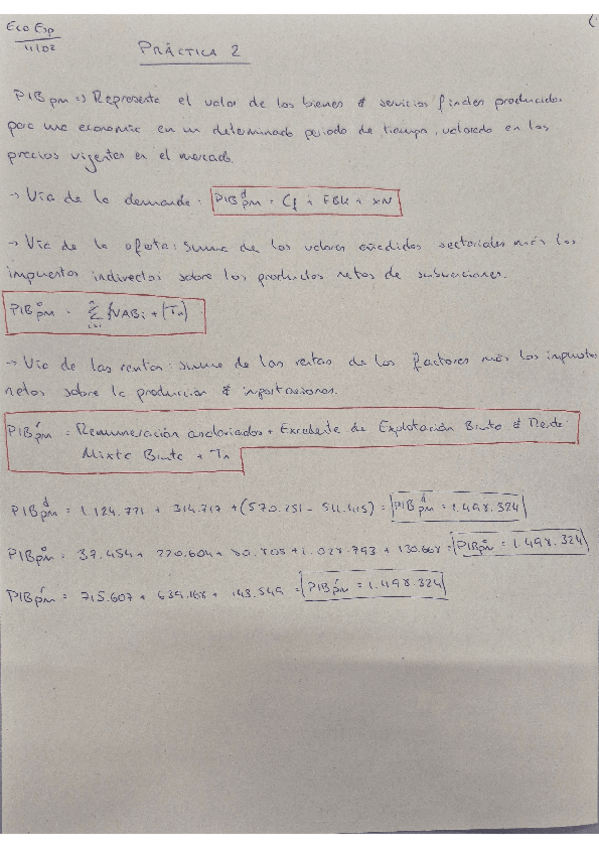 Eco Esp
11/02
PRÁCTICA 2
PIBpm => Representa el valor de los bienes & servicios finales producidos
para una economía en un determinado periodo de tiempo, valorado en los
precios vigentes en el mercado.
-> Vía de la demanda: PIBᵈpm = Cf + FBK + XN
-> Vía de la oferta: suma de los valores añadidos sectoriales más los
impuestos indirectos sobre los productos netos de subvenciones.
PIBᵒpm = Σ VABi + (Tn)
-> Vía de las rentas: suma de las rentas de los factores más los impuestos
netos sobre la producción & importaciones.
PIBʳpm = Remuneración asalariados + Excedente de Explotación Bruto & Renta
Mixta Bruta + Tn
PIBᵈpm = 1.124.771 + 314.717 + (570.251 - 511.415) = PIBᵈpm = 1.498.324
PIBᵒpm = 37.454 + 220.604 + 80.805 + 1.028.793 + 130.668 = PIBᵒpm = 1.498.324
PIBʳpm = 715.607 + 639.168 + 143.549 = PIBʳpm = 1.498.324